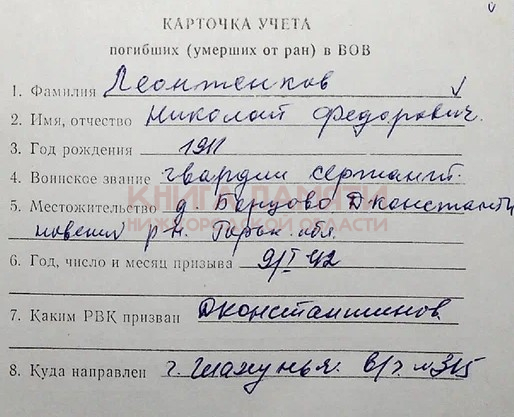 КАРТОЧКА УЧЕТА
погибших (умерших от ран) в ВОВ
1. Фамилия Леонтенков
2. Имя, отчество Николай Федорович.
3. Год рождения 1911
4. Воинское звание гвардии сержант.
КНИГА ПАМЯТИ
5. Местожительство д. Борцово Дконстанти
НИЖЕГОРОДСКОЙ ОБЛАСТИ
новский р-н. Горьк. обл.
6. Год, число и месяц призыва 9/I 42
7. Каким РВК призван Дконстантинов.
8. Куда направлен г. Шахунья. в/ч. №315